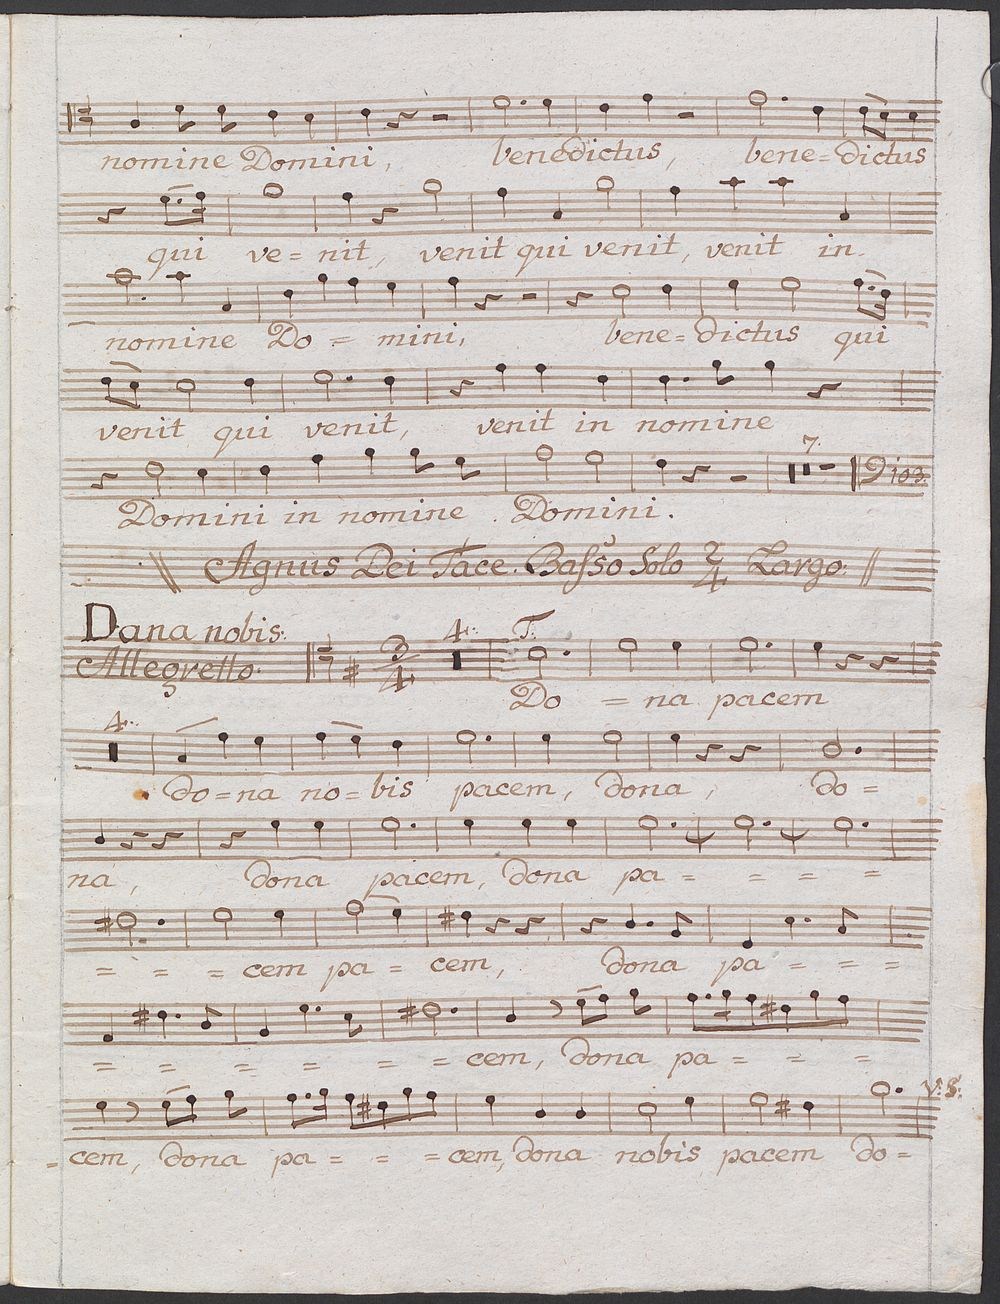 nomine Domini, benedictus, bene=dictus
qui ve=nit, venit qui venit, venit in
nomine Do = mini, bene=dictus qui
venit qui venit, venit in nomine
7.
103.
Domini in nomine. Domini.
Agnus Dei Tace. Basso Solo 2/4 Largo.
Dana nobis.
Allegretto. 3/4 4. T.
Do = na pacem
4.
do=na no=bis pacem, dona, do=
na, dona pacem, dona pa = = = =
= = = cem pa = cem, dona pa = = =
= = = = = = cem, dona pa = = =
V:S:
= cem, dona pa = = = cem, dona nobis pacem do=